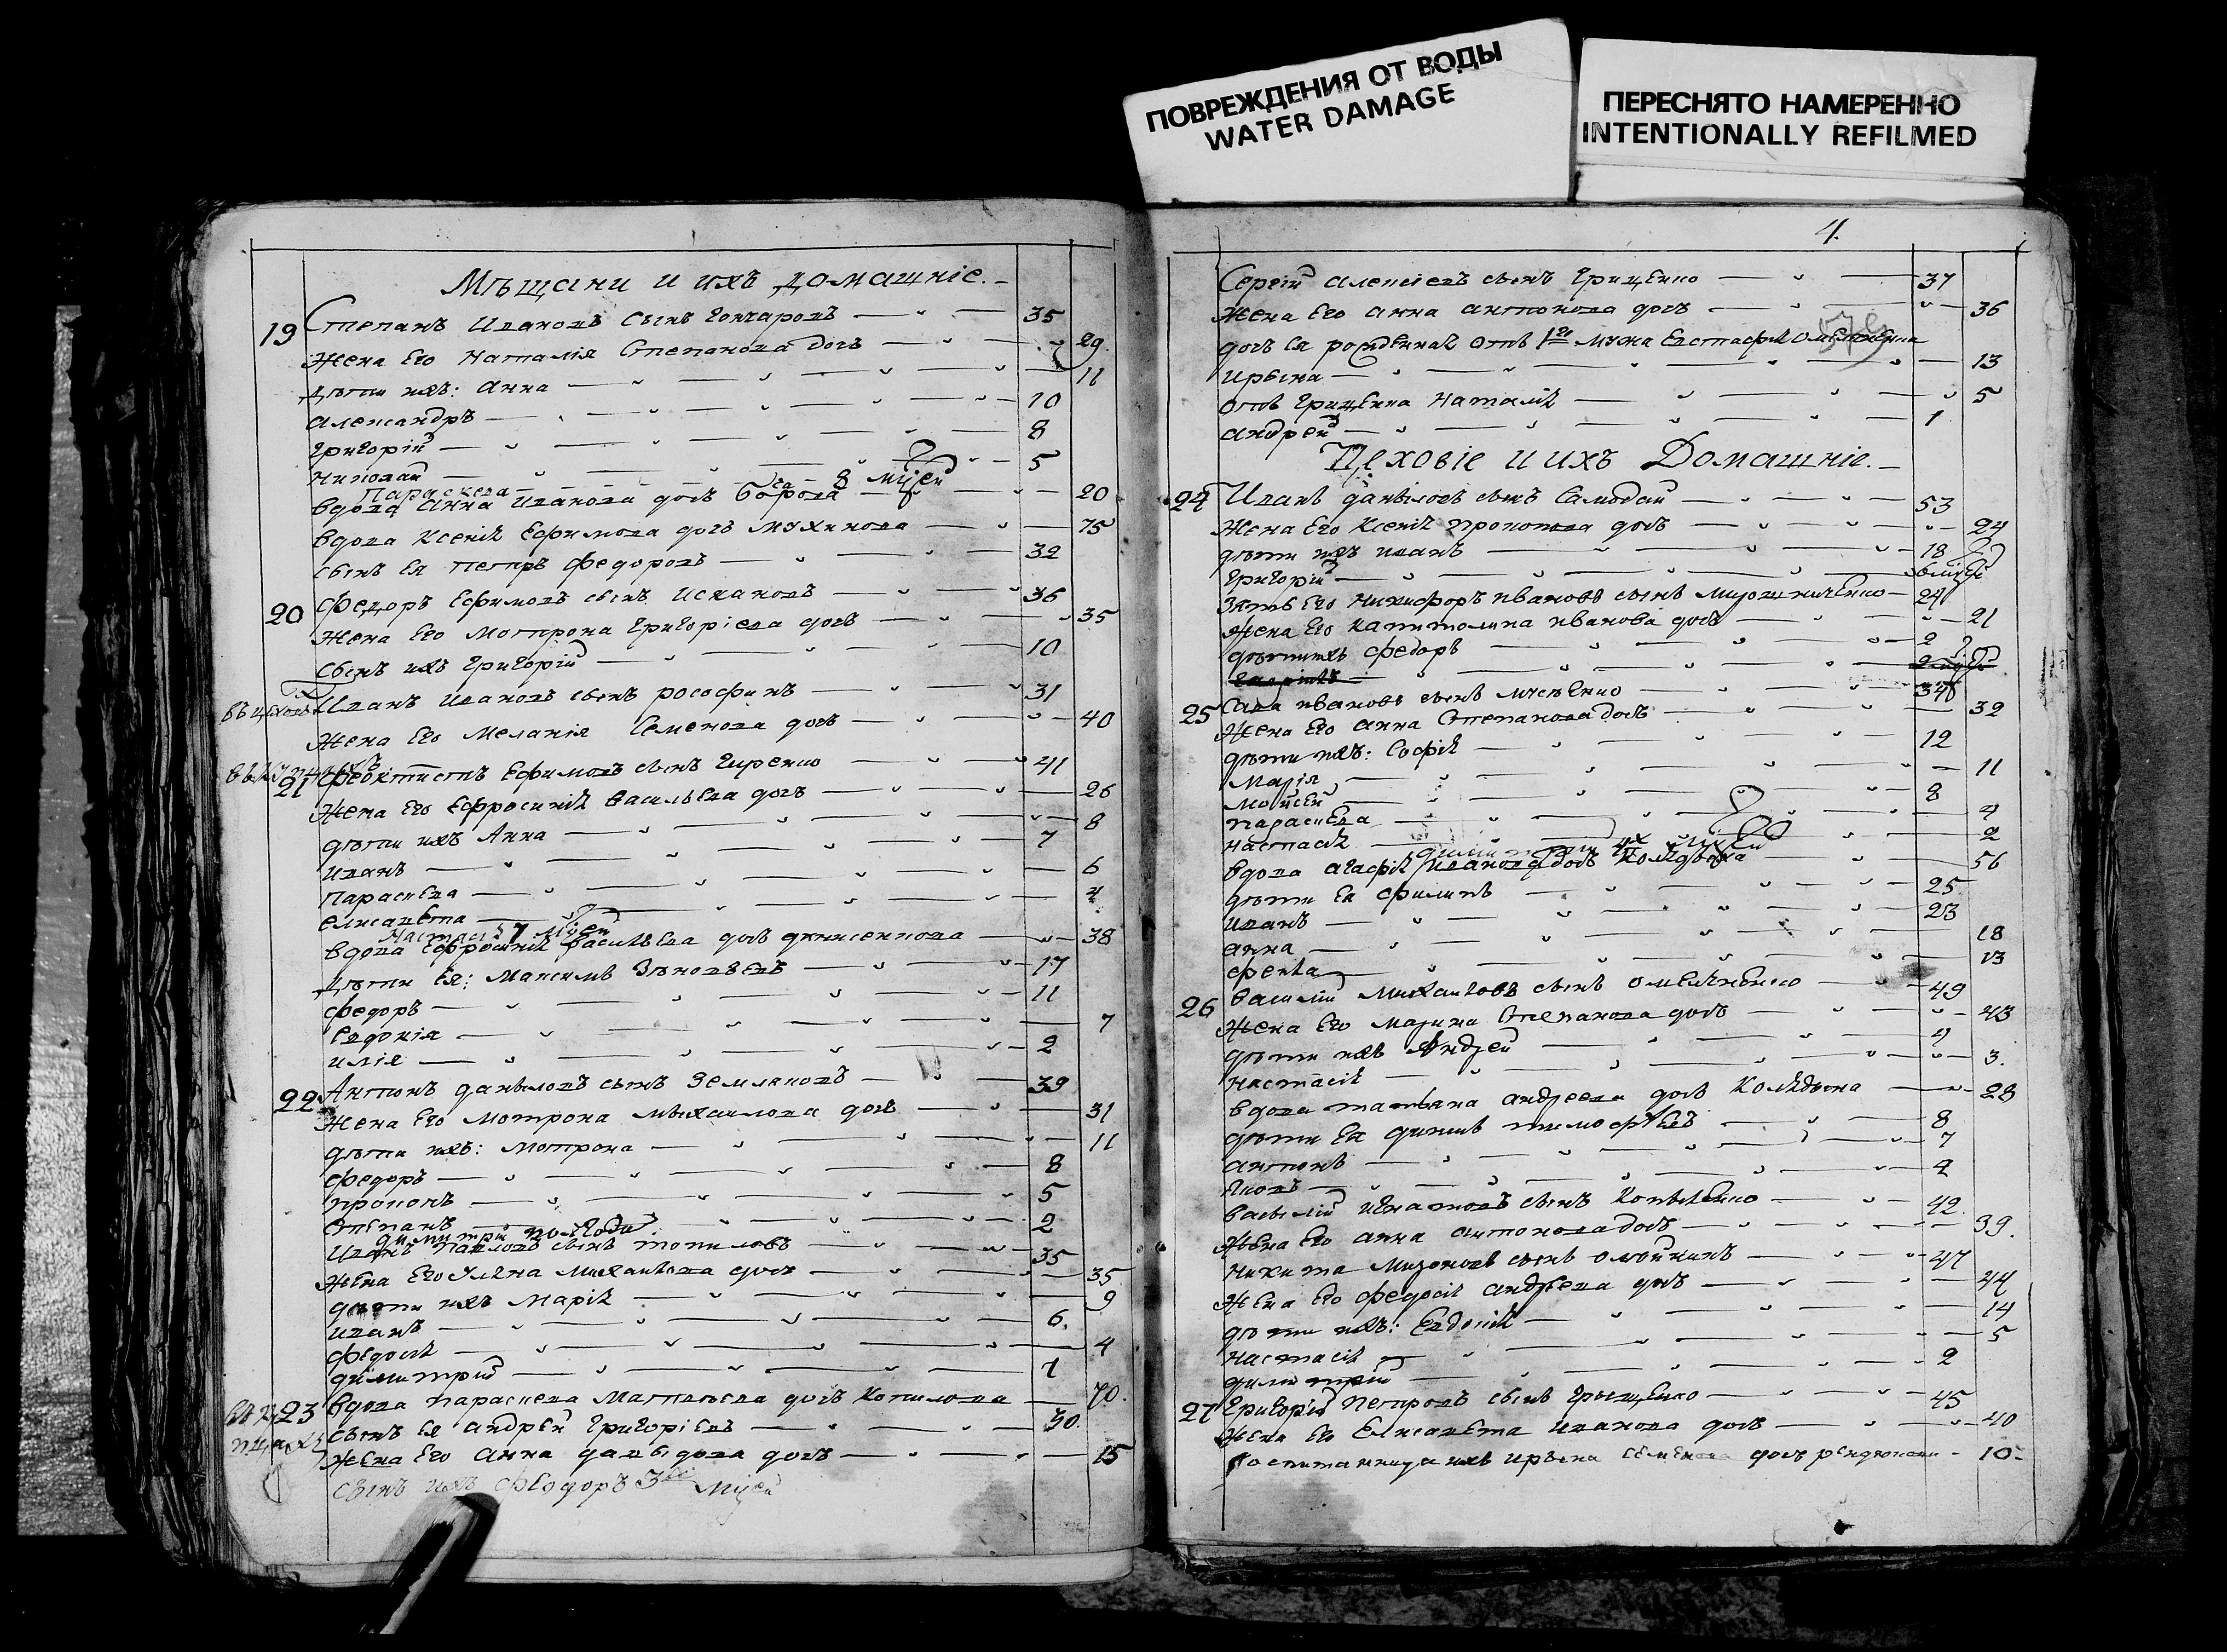 ПОВРЕЖДЕНИЯ ОТ ВОДЫ
WATER DAMAGE
ПЕРЕСНЯТО НАМЕРЕННО
INTENTIONALLY REFILMED
Мѣщани и ихъ домашніе.
19 Степанъ Ивановъ сынъ Гончаровъ 35
Жена его Наталія Степанова дочь 29
Дѣти ихъ: Анна 11
Александръ 10
Григорій 8
Николай 5
Параскева 8 мцей
вдова Анна Иванова дочь 20
вдова Ксенія Ефимова дочь Мухинова 75
сынъ ея Петръ Федоровъ 32
20 Федоръ Ефимовъ сынъ Искановъ 36
Жена его Мотрона Григоріева дочь 35
сынъ ихъ Григорій 10
Иванъ Ивановъ сынъ 31
Жена его Меланія Семенова дочь 40
21 Феоктистъ Ефимовъ сынъ 41
Жена его Ефросинія Васильева дочь 26
дѣти ихъ Анна 8
Иванъ 7
Параскева 6
Елисавета 4
Настасія 7 мцей
вдова Ефросинія Васильева дочь 38
Дѣти ея: Максимъ Зѣновьевъ 17
Федоръ 11
Евдокія 7
Илія 2
22 Антонъ Данѣловъ сынъ Землановъ 39
Жена его Мотрона Михаилова дочь 31
дѣти ихъ: Мотрона 11
Федоръ 8
Прокопъ 5
Степанъ 2
Димитрій полгода
Иванъ Павловъ сынъ Топиловъ 35
Жена его Уляна Михаилова дочь 35
дѣти ихъ Марія 9
Иванъ 6.
Федосія 4
Димитрій 1
23 вдова Параскева Матвѣева дочь Копилова 70.
сынъ ея Андрей Григоріевъ 30.
Жена его Анна Давыдова дочь 15
сынъ ихъ Феодоръ 3 мцей
4.
Сергій Алексіевъ сынъ Грищенко 37
Жена его Анна Антонова дочь 36
дочь ея рожденная отъ 1го мужа Евстафія
Ирына 13
отъ Грищенка Наталія 5
Андрей 1
Цеховіе и ихъ Домашніе.
24 Иванъ Данѣловъ сынъ Самодай 53
Жена его Ксенія Прокопова дочь 24
дѣти ихъ Иванъ 18
Григорій
Зять его Никифоръ Ивановъ сынъ Мирошниченко 24
Жена его Капитолина Иванова дочь 21
дѣти ихъ Федоръ 2
25 Сава Ивановъ сынъ 34
Жена его Анна Степанова дочь 32
дѣти ихъ: Софія 12
Марія 11
Мойсей 8
Параскева 4
Настасія 2
вдова Агафія Иванова дочь 56
дѣти ея Филипъ 25
Иванъ 23
Анна 18
Фекла 13
26 Василій Михаиловъ сынъ Омеляненко 49
Жена его Марина Степанова дочь 43
дѣти ихъ Андрей 4
Настасія 3.
вдова Татьяна Андреева дочь Колядына 28
дѣти ея Данилъ Тимофѣевъ 8
Антонъ 7
Яковъ 4
Василій Игнатовъ сынъ 42
Жена его Анна Антонова дочь 39.
Никита Мироновъ сынъ Олейникъ 47
Жена его Федосія Андреева дочь 44
дѣти ихъ: Евдокія 14
Настасія 5
Димитрій 2
27 Григорій Петровъ сынъ Грыщенко 45
Жена его Елисавета Иванова дочь 40
воспитанница ихъ Ирына Семенова дочь 10.